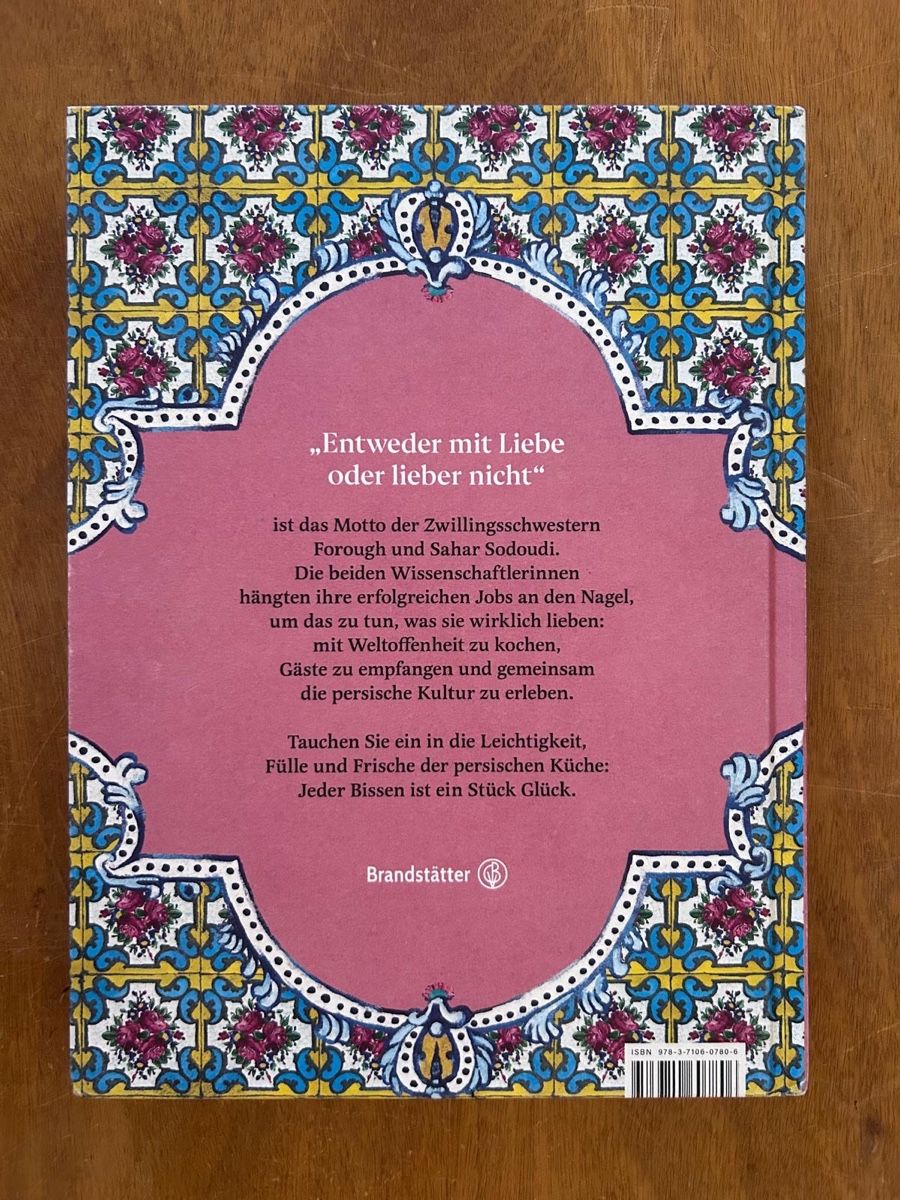 „Entweder mit Liebe
oder lieber nicht“
ist das Motto der Zwillingsschwestern
Forough und Sahar Sodoudi.
Die beiden Wissenschaftlerinnen
hängten ihre erfolgreichen Jobs an den Nagel,
um das zu tun, was sie wirklich lieben:
mit Weltoffenheit zu kochen,
Gäste zu empfangen und gemeinsam
die persische Kultur zu erleben.
Tauchen Sie ein in die Leichtigkeit,
Fülle und Frische der persischen Küche:
Jeder Bissen ist ein Stück Glück.
Brandstätter
ISBN 978-3-7106-0780-6